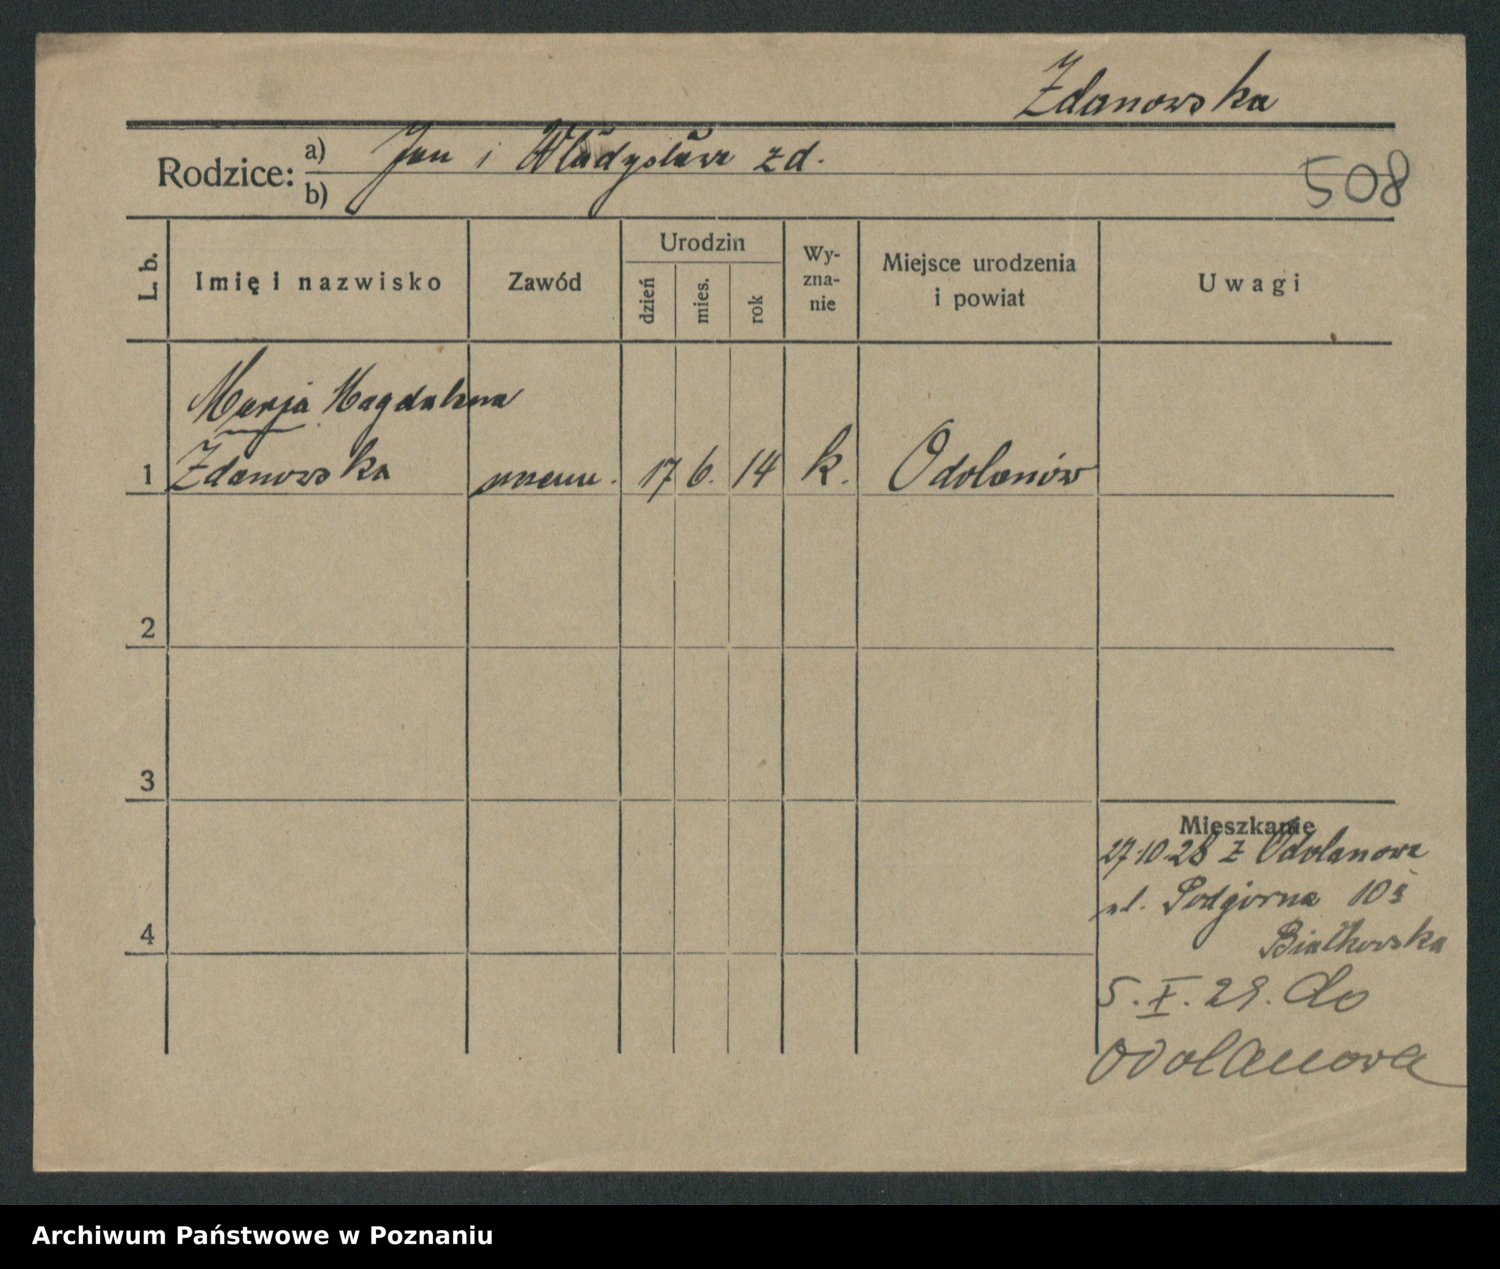 Zdanowska
Rodzice: a) Jan i Władysława zd.
b)
508
L. b.
Imię i nazwisko
Zawód
Urodzin
dzień
mies.
rok
Wy-
zna-
nie
Miejsce urodzenia
i powiat
Uwagi
Marja Magdalena
1 Zdanowska uczenn. 17 6. 14 k. Odolanów
2
3
4
Mieszkanie
27.10.28 z Odolanowa
ul. Podgórna 10
Białkowska
5.X.29. do
Odolanowa
Archiwum Państwowe w Poznaniu